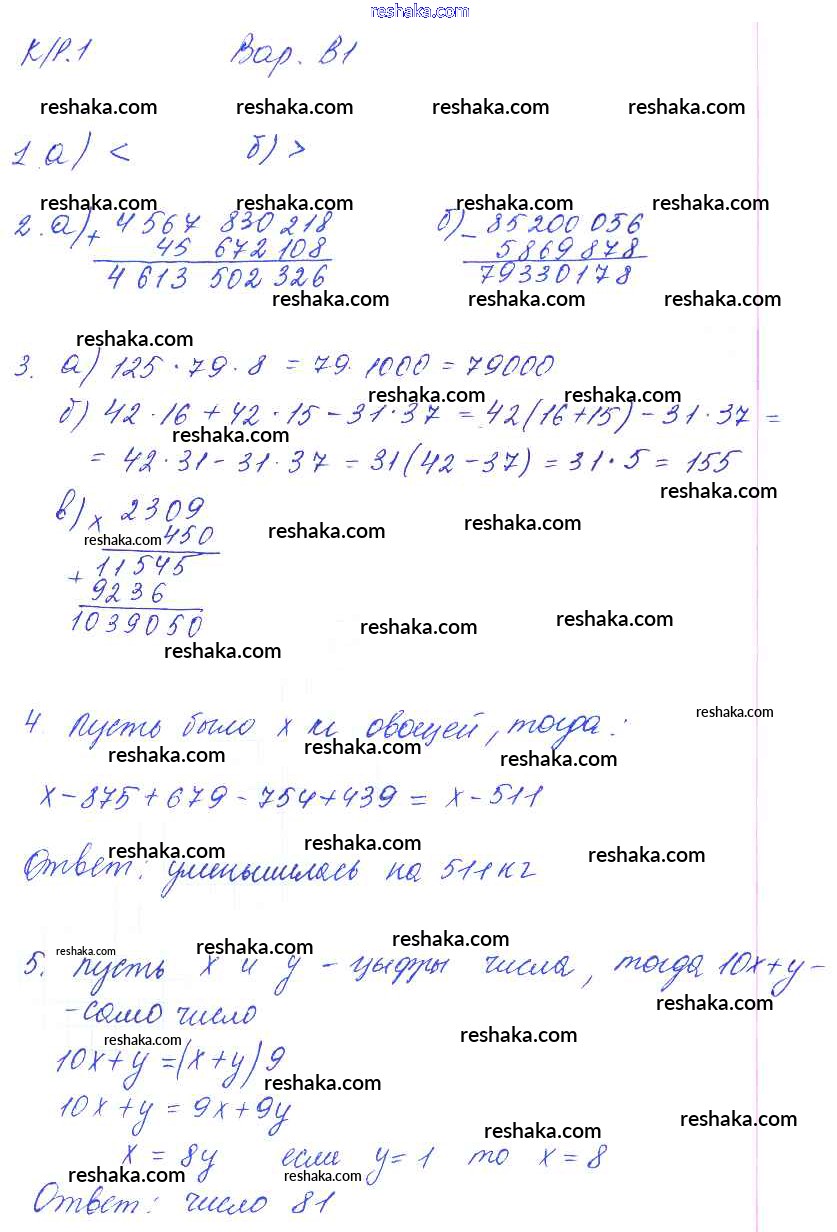 reshaka.com
К/Р.1 Вар. В1
reshaka.com reshaka.com reshaka.com reshaka.com
1 а) < б) >
reshaka.com reshaka.com reshaka.com reshaka.com
2. а) + 4 567 830 218 б) - 85200 056
45 672 108 5869 878
4 613 502 326 79330178
reshaka.com reshaka.com reshaka.com
reshaka.com
3. а) 125 · 79 · 8 = 79 · 1000 = 79000
reshaka.com reshaka.com
б) 42 · 16 + 42 · 15 - 31 · 37 = 42(16+15) - 31 · 37 =
reshaka.com
= 42 · 31 - 31 · 37 = 31(42-37) = 31 · 5 = 155
reshaka.com
в) x 2309
reshaka.com 450 reshaka.com reshaka.com
+ 11545
9236
1039050 reshaka.com reshaka.com
reshaka.com
reshaka.com
4. Пусть было x кг овощей, тогда:
reshaka.com reshaka.com reshaka.com
x - 875 + 679 - 754 + 439 = x - 511
reshaka.com reshaka.com reshaka.com
Ответ: уменьшилась на 511 кг
reshaka.com reshaka.com reshaka.com
5. Пусть x и y - цыфры числа, тогда 10x+y -
reshaka.com
- само число
reshaka.com reshaka.com
10x + y = (x+y) 9
reshaka.com
10x + y = 9x + 9y
reshaka.com reshaka.com
x = 8y если y = 1 то x = 8
reshaka.com reshaka.com
Ответ: число 81